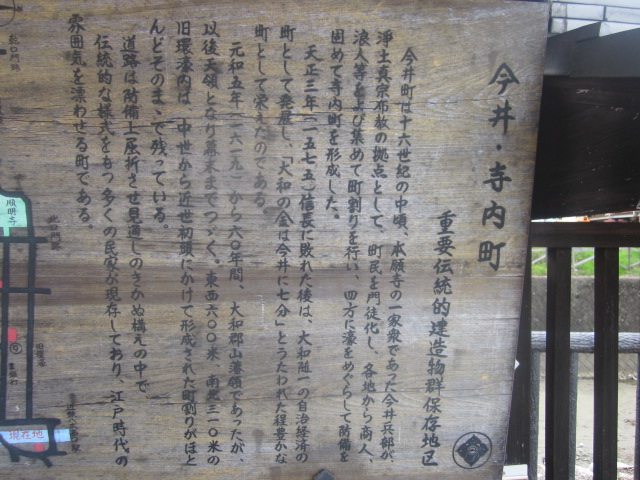 今井・寺内町
重要伝統的建造物群保存地区
今井町は十六世紀の中頃、本願寺の一家衆であった今井兵部が、
浄土真宗布教の拠点として、町民を門徒化し、各地から商人、
浪人等をよび集めて町割りを行い、四方に濠をめぐらして防備を
固めて寺内町を形成した。
天正三年(一五七五)信長に敗れた後は、大和随一の自治経済の
町として発展し、「大和の金は今井に七分」とうたわれた程豊かな
町として栄えたのである。
元和五年(一六一九)から六〇年間、大和郡山藩領であったが、
以後天領となり幕末までつゞく。東西六〇〇米、南北三一〇米の
旧環濠内は、中世から近世初頭にかけて形成された町割りがほと
んどそのまゝで残っている。
道路は防備上屈折させ見通しのきかぬ構えの中で、
伝統的な様式をもつ多くの民家が現存しており、江戸時代の
雰囲気を漂わせる町である。
順明寺
現在地